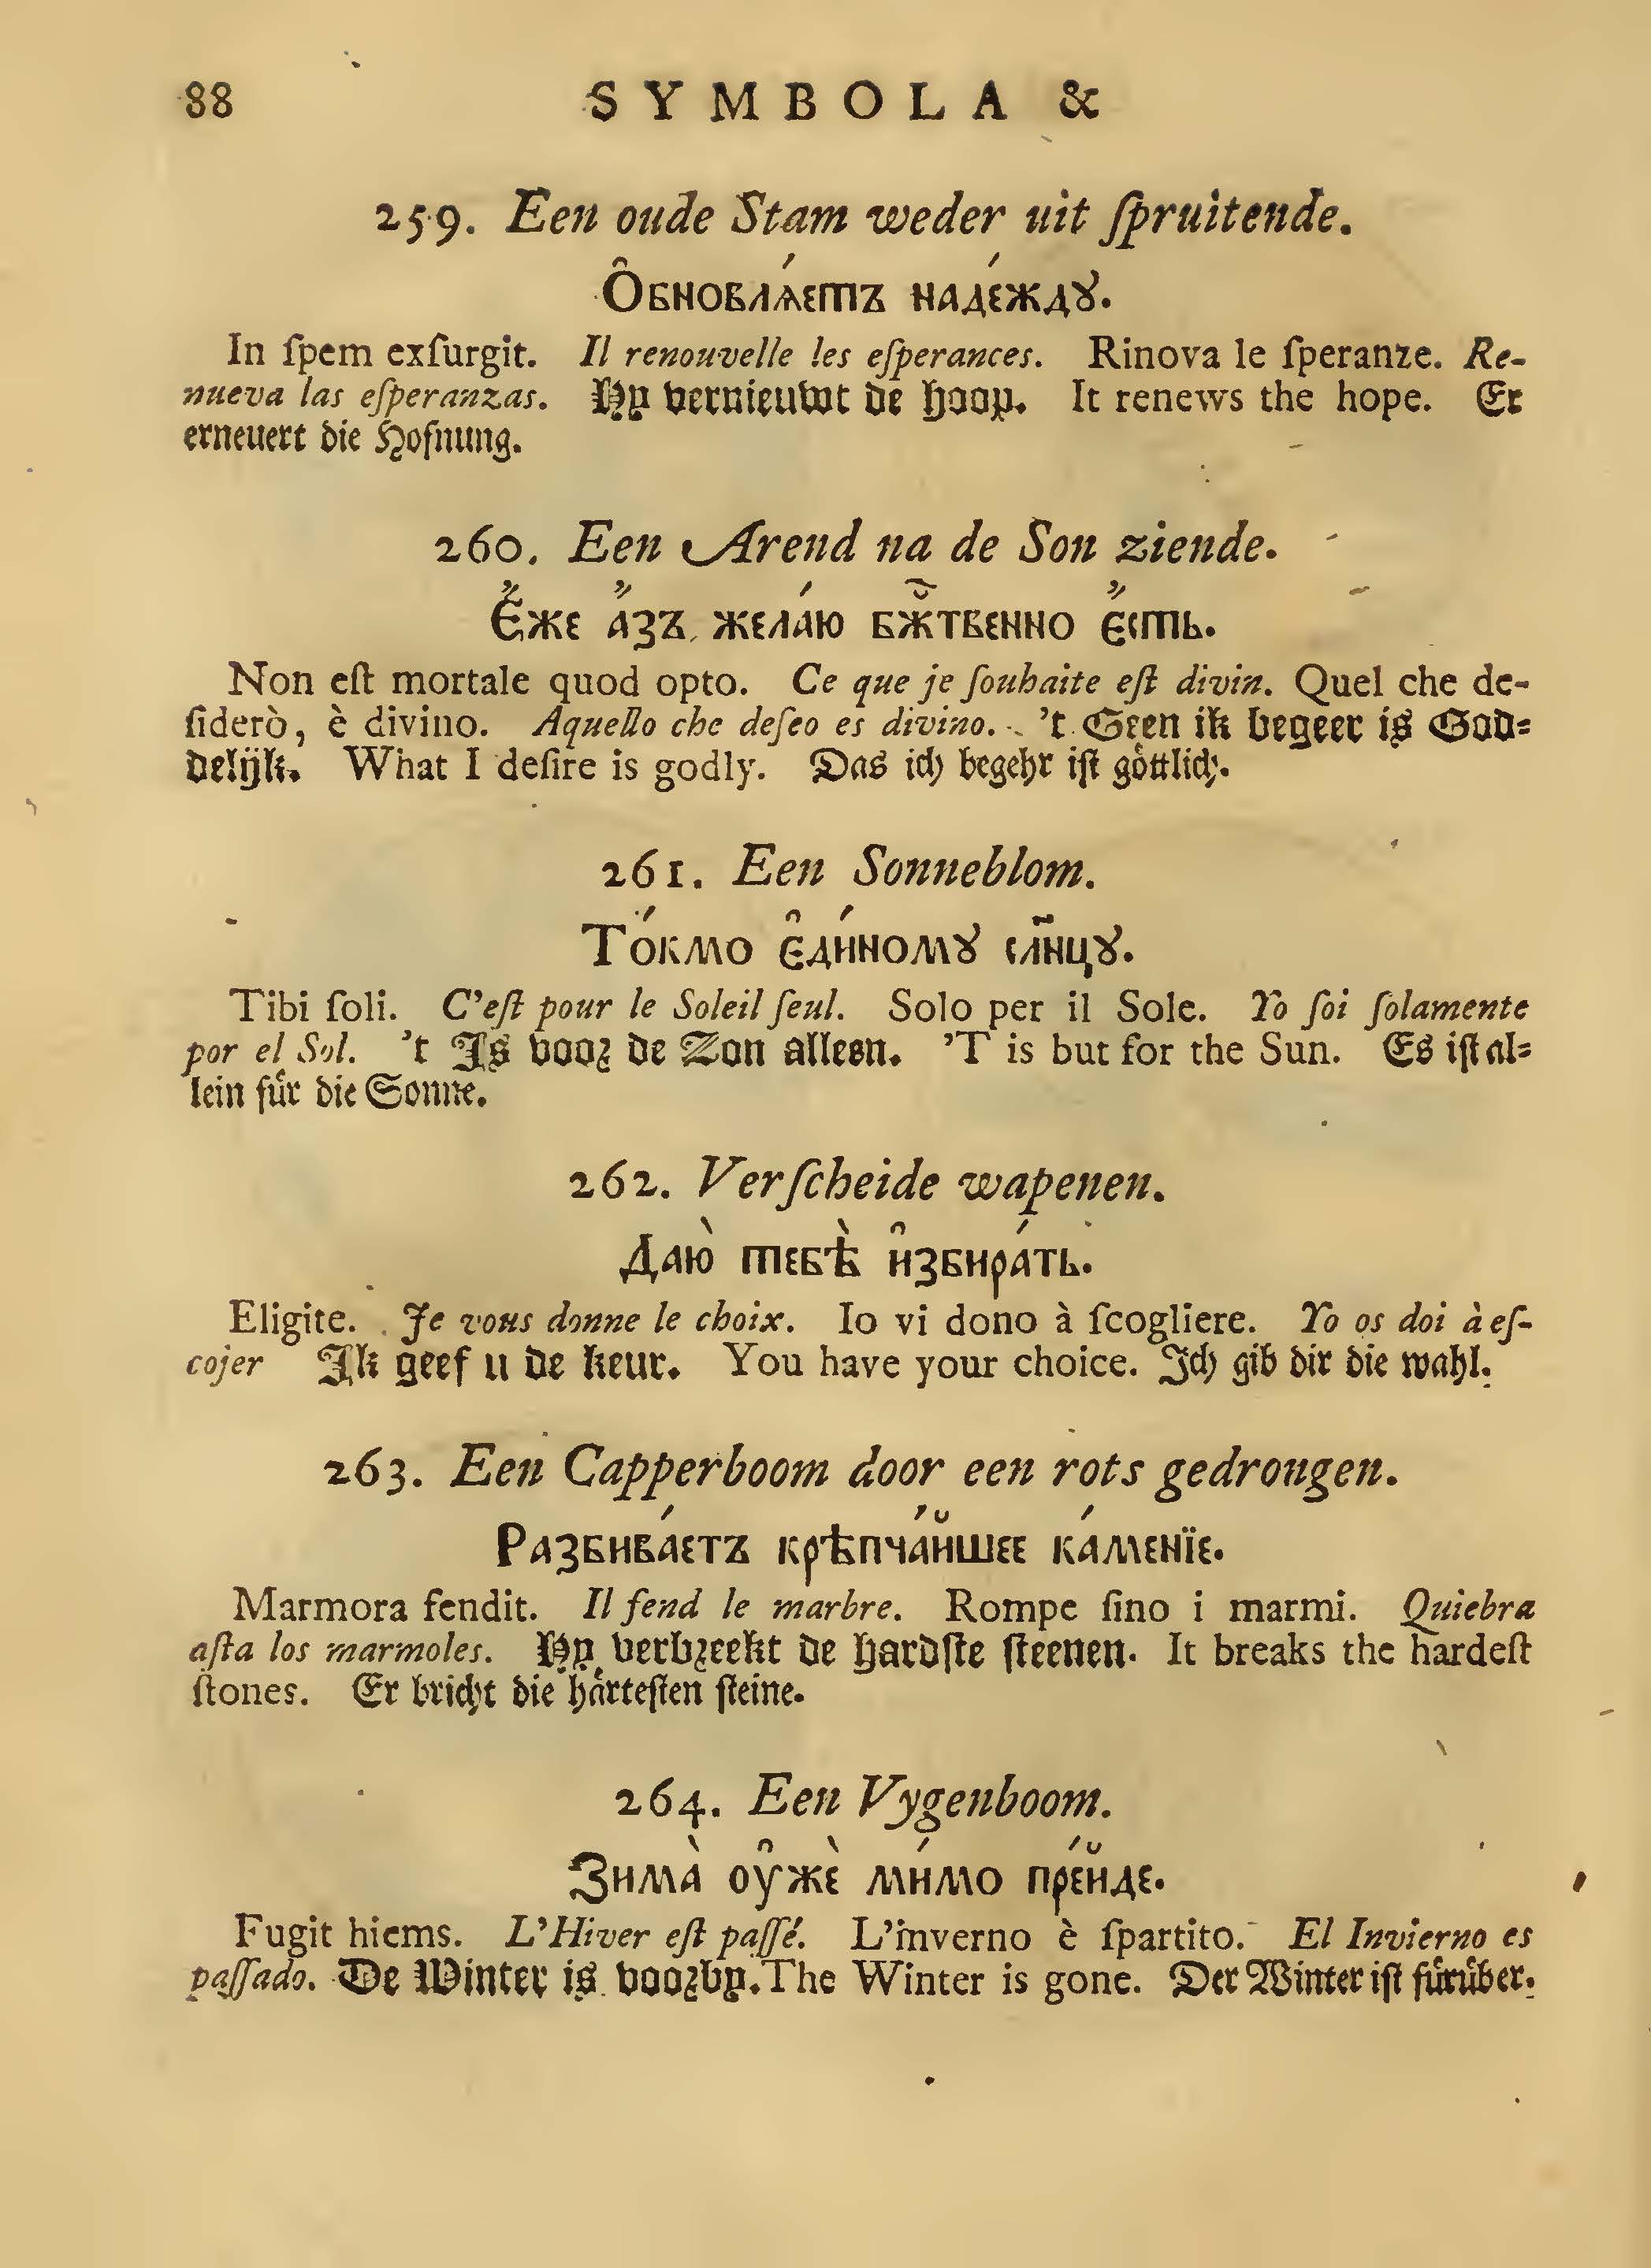 88 SYMBOLA &
259. Een oude Stam weder uit ſpruitende.
Ѻ҆бновлѧ́етъ наде́ждꙋ.
In ſpem exſurgit. Il renouvelle les eſperances. Rinova le ſperanze. Re-
nueva las eſperanzas. Hy vernieuwt de hoop. It renews the hope. Er
erneuert die Hofnung.
260. Een Arend na de Son ziende.
Є҆́же а҆́зъ, жела́ю бж҃твенно є҆́сть.
Non eſt mortale quod opto. Ce que je ſouhaite eſt divin. Quel che de-
ſiderò, è divino. Aquello che deſeo es divino. 't Geen ik begeer is God-
delijk. What I deſire is godly. Das ich begehr iſt göttlich.
261. Een Sonneblom.
То́кмо є҆ди́номꙋ сл҃нцꙋ.
Tibi ſoli. C'eſt pour le Soleil ſeul. Solo per il Sole. Yo ſoi ſolamente
por el Sol. 't Is voor de Zon alleen. 'T is but for the Sun. Es iſt al-
lein für die Sonne.
262. Verſcheide wapenen.
Даю̀ тебѣ̀ и҆збира́ть.
Eligite. Je vous donne le choix. Io vi dono à ſcogliere. Yo os doi à eſ-
cojer Ik geef u de keur. You have your choice. Ich gib dir die wahl.
263. Een Capperboom door een rots gedrongen.
Разбива́етъ крѣпча́йшее ка́менїе.
Marmora fendit. Il fend le marbre. Rompe ſino i marmi. Quiebra
aſta los marmoles. Hy verbreekt de hardſte ſteenen. It breaks the hardeſt
ſtones. Er bricht die härteſten ſteine.
264. Een Vygenboom.
Зима̀ оу҆жѐ ми́мо пре́йде.
Fugit hiems. L'Hiver eſt paſſé. L'inverno è ſpartito. El Invierno es
paſſado. De Winter is voorby. The Winter is gone. Der Winter iſt fürüber.